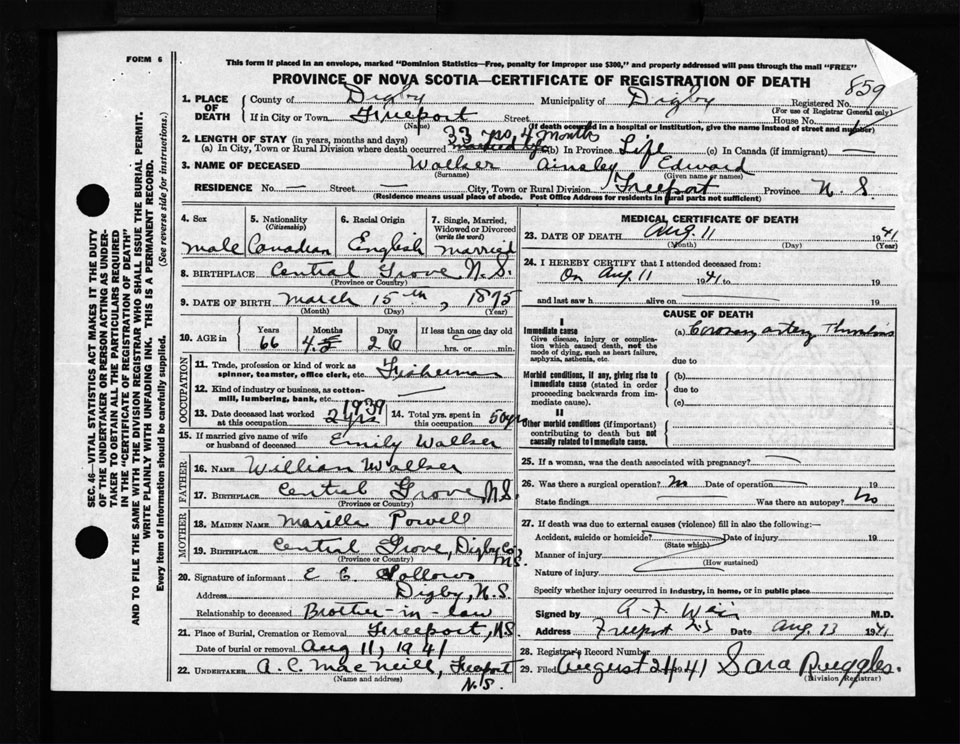 FORM 6
This form if placed in an envelope, marked "Dominion Statistics—Free, penalty for improper use $300," and properly addressed will pass through the mail "FREE"
PROVINCE OF NOVA SCOTIA—CERTIFICATE OF REGISTRATION OF DEATH
859
1. PLACE OF DEATH County of Digby Municipality of Digby Registered No.
(For use of Registrar General only)
If in City or Town Freeport Street House No.
(Name) (If death occurred in a hospital or institution, give the name instead of street and number)
2. LENGTH OF STAY (in years, months and days) 33 yrs, 4 months
(a) In City, Town or Rural Division where death occurred (b) In Province Life (c) In Canada (if immigrant) —
3. NAME OF DECEASED Walker Ainsley Edward
(Surname) (Given name or names)
RESIDENCE No. — Street — City, Town or Rural Division Freeport Province N. S.
(Residence means usual place of abode. Post Office Address for residents in rural parts not sufficient)
4. Sex 5. Nationality 6. Racial Origin 7. Single, Married, Widowed or Divorced
(Citizenship) (write the word)
male Canadian English married
8. BIRTHPLACE Central Grove N.S.
(Province or Country)
9. DATE OF BIRTH March 15th, 1875
(Month) (Day) (Year)
10. AGE in Years Months Days If less than one day old
66 4 26 hrs. or min.
OCCUPATION
11. Trade, profession or kind of work as spinner, teamster, office clerk, etc. Fisherman
12. Kind of industry or business, as cotton-mill, lumbering, bank, etc. —
13. Date deceased last worked at this occupation 1939 2 yrs 14. Total yrs. spent in this occupation 50 yrs
15. If married give name of wife or husband of deceased Emily Walker
FATHER
16. NAME William Walker
17. BIRTHPLACE Central Grove N.S.
(Province or Country)
MOTHER
18. MAIDEN NAME Marilla Powell
19. BIRTHPLACE Central Grove, Digby Co, N.S.
(Province or Country)
20. Signature of informant E C Sollows
Address Digby, N.S.
Relationship to deceased Brother-in-law
21. Place of Burial, Cremation or Removal Freeport, N.S.
Date of burial or removal Aug 11, 1941
22. UNDERTAKER A. C. MacNeill, Freeport N.S.
(Name and address)
MEDICAL CERTIFICATE OF DEATH
23. DATE OF DEATH Aug. 11 1941
(Month) (Day) (Year)
24. I HEREBY CERTIFY that I attended deceased from:
On Aug 11 1941 to 19
and last saw h alive on 19
CAUSE OF DEATH
I
Immediate cause (a) Coronary artery Thrombosis
Give disease, injury or complication which caused death, not the mode of dying, such as heart failure, asphyxia, asthenia, etc.
due to
Morbid conditions, if any, giving rise to immediate cause (stated in order proceeding backwards from immediate cause).
(b)
due to
(c)
II
Other morbid conditions (if important) contributing to death but not causally related to immediate cause.
25. If a woman, was the death associated with pregnancy? —
26. Was there a surgical operation? No Date of operation 19
State findings Was there an autopsy? No
27. If death was due to external causes (violence) fill in also the following:—
Accident, suicide or homicide? Date of injury 19
(State which)
Manner of injury
(How sustained)
Nature of injury
Specify whether injury occurred in industry, in home, or in public place
Signed by A. F. Weir M.D.
Address Freeport N.S Date Aug. 13 1941
28. Registrar's Record Number
29. Filed August 21 1941 Sara Ruggles.
(Division Registrar)
SEC. 46—VITAL STATISTICS ACT MAKES IT THE DUTY
OF THE UNDERTAKER OR PERSON ACTING AS UNDER-
TAKER TO OBTAIN ALL THE PARTICULARS REQUIRED
IN THE "CERTIFICATE OF REGISTRATION OF DEATH"
AND TO FILE THE SAME WITH THE DIVISION REGISTRAR WHO SHALL ISSUE THE BURIAL PERMIT.
WRITE PLAINLY WITH UNFADING INK. THIS IS A PERMANENT RECORD.
Every item of Information should be carefully supplied. (See reverse side for instructions.)